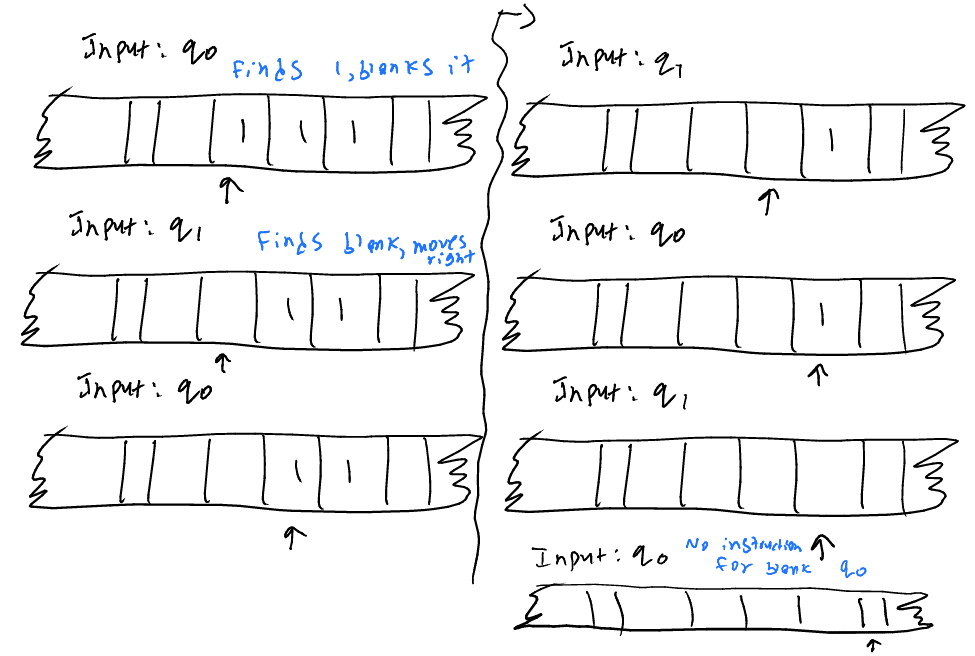 Input: q0
Finds 1, blanks it
1 1 1
Input: q1
Finds blank, moves
right
1 1
Input: q0
1 1
Input: q1
1
Input: q0
1
Input: q1
Input: q0
No instruction
for blank q0